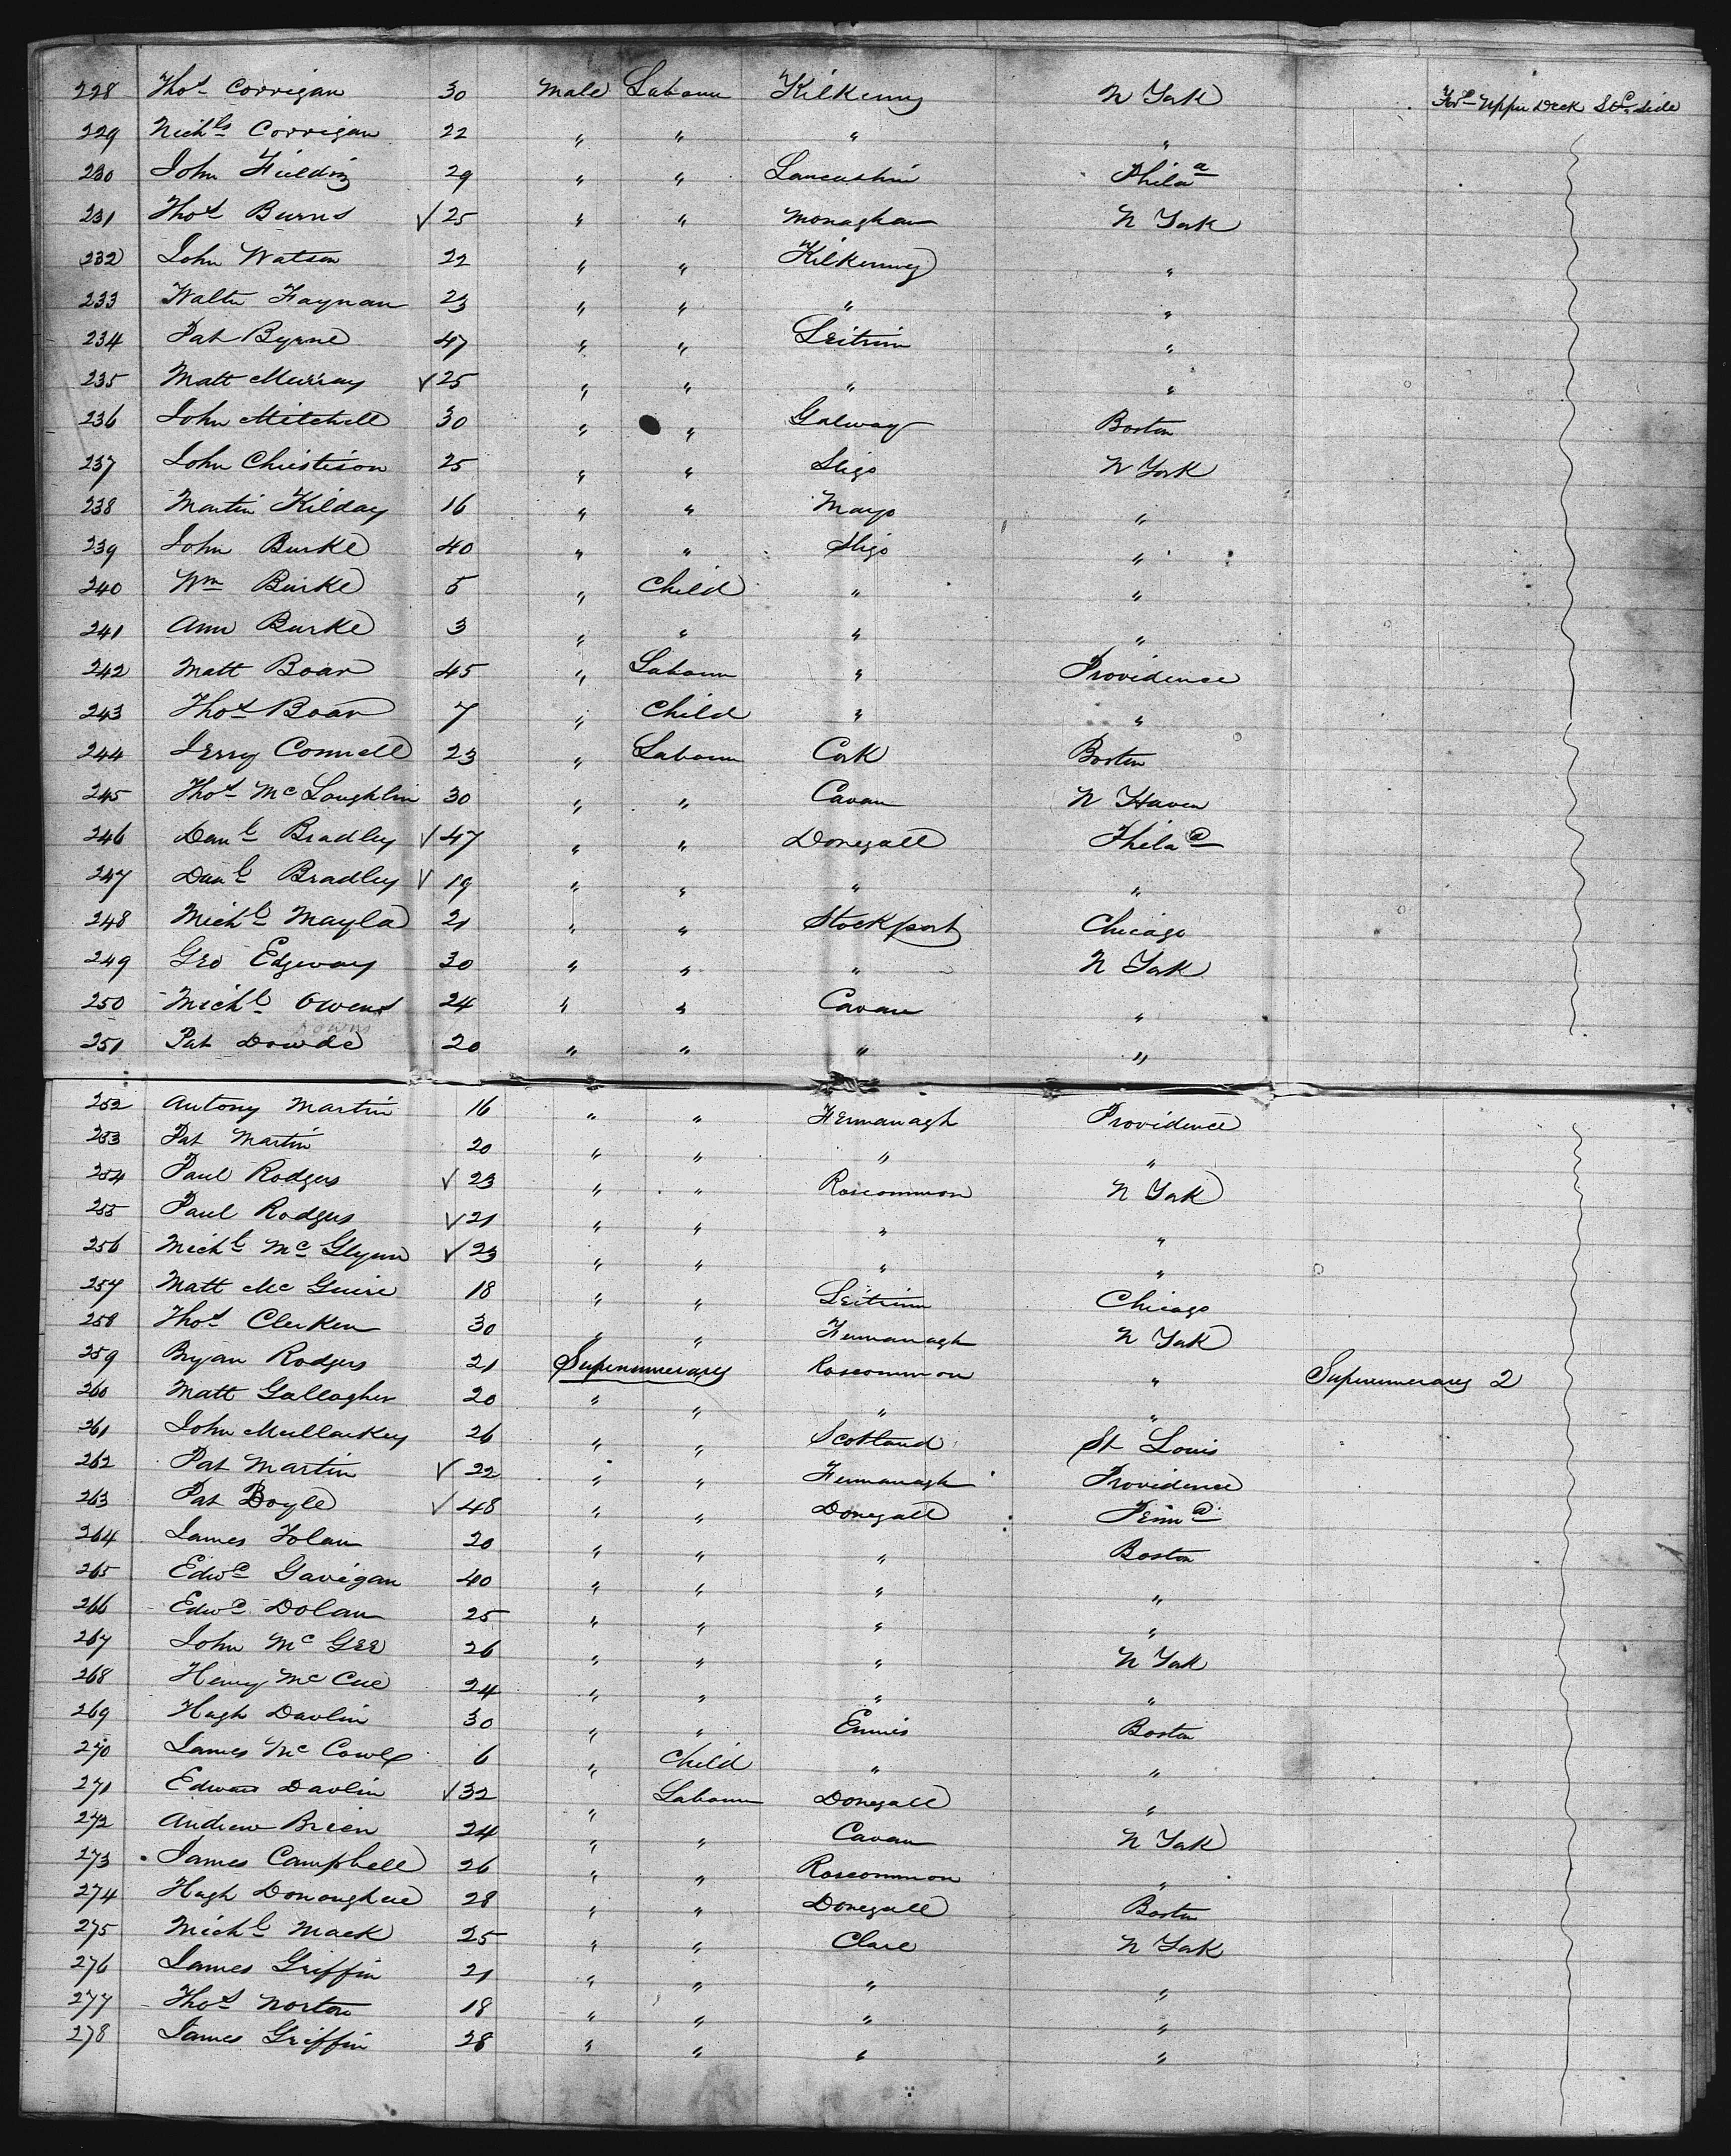 228 Thos Corrigan 30 Male Labour Kilkenny N York Upper Deck Side
229 Nichls Corrigan 22 " " " "
230 John Fielding 29 " " Lancashire Phila
231 Thos Burns √ 25 " " Monaghan N York
232 John Watson 22 " " Kilkenny "
233 Walter Faynan 23 " " " "
234 Pat Byrne 47 " " Leitrim "
235 Matt Murray √ 25 " " " "
236 John Mitchell 30 " " Galway Boston
237 John Christison 25 " " Sligo N York
238 Martin Kilday 16 " " Mayo "
239 John Burke 40 " " Sligo "
240 Wm Burke 5 " Child " "
241 Ann Burke 3 " " " "
242 Matt Boar 45 " Labour " Providence
243 Thos Boar 7 " Child " "
244 Jerry Connell 23 " Labour Cork Boston
245 Thos McLoughlin 30 " " Cavan N Haven
246 Danl Bradley √ 47 " " Donegall Phila
247 Danl Bradley √ 19 " " " "
248 Michl Mayla 21 " " Stockport Chicago
249 Geo Edgway 30 " " " N York
250 Michl Owens 24 " " Cavan "
Downs
251 Pat Dowde 20 " " " "
252 Antony Martin 16 " " Fermanagh Providence
253 Pat Martin 20 " " " "
254 Paul Rodgers √ 23 " " Roscommon N York
255 Paul Rodgers √ 21 " " " "
256 Michl McGlynn √ 23 " " " "
257 Matt McGuire 18 " " Leitrim Chicago
258 Thos Clerken 30 " " Fermanagh N York
259 Bryan Rodgers 21 Supernumerary Roscommon " Supernumerary 2
260 Matt Gallagher 20 " " " "
261 John Mullarkey 26 " " Scotland St Louis
262 Pat Martin √ 22 " " Fermanagh Providence
263 Pat Boyle √ 48 " " Donegall Penna
264 James Folan 20 " " " Boston
265 Edwd Gavigan 40 " " " "
266 Edwd Dolan 25 " " " "
267 John McGee 26 " " " N York
268 Henry McCue 24 " " " "
269 Hugh Davlin 30 " " Ennis Boston
270 James Mc 6 " Child " "
271 Edward Davlin √ 32 " Labour Donegall "
272 Andrew Brien 24 " " Cavan N York
273 James Campbell 26 " " Roscommon "
274 Hugh Donoughue 28 " " Donegall Boston
275 Michl Mack 25 " " Clare N York
276 James Griffin 21 " " " "
277 Thos Norton 18 " " " "
278 James Griffin 28 " " " "